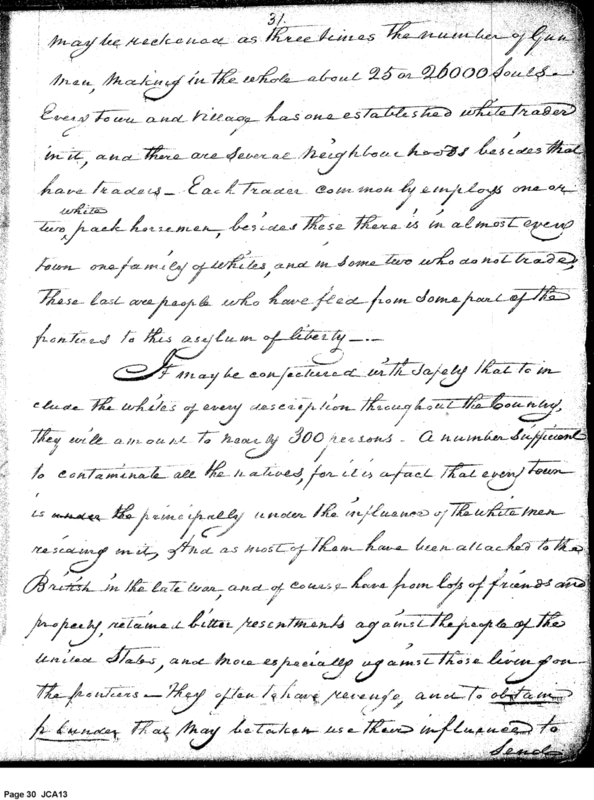 31.
may be reckoned as three times the number of Gun
men, making in the whole about 25 or 26000 Souls.
Every town and Village has one established white trader
in it, and there are several Neighbourhoods besides that
have traders — Each trader commonly employs one or
white
two pack horsemen, besides these there is in almost every
town one family of Whites, and in some two who do not trade,
These last are people who have fled from some part of the
frontiers to this asylum of liberty —.—
It may be conjectured with safety that to in
clude the whites of every description throughout the Country,
they will amount to nearly 300 persons — A number sufficient
to contaminate all the natives, for it is a fact that every town
is under the principally under the influence of the white men
residing in it, And as most of them have been attached to the
British in the late war, and of course have from loss of friends and
property, retained bitter resentments against the people of the
United States, and more especially against those living on
the frontiers — They often to have revenge, and to obtain
plunder that may be taken use their influence to
Send
Page 30 JCA13